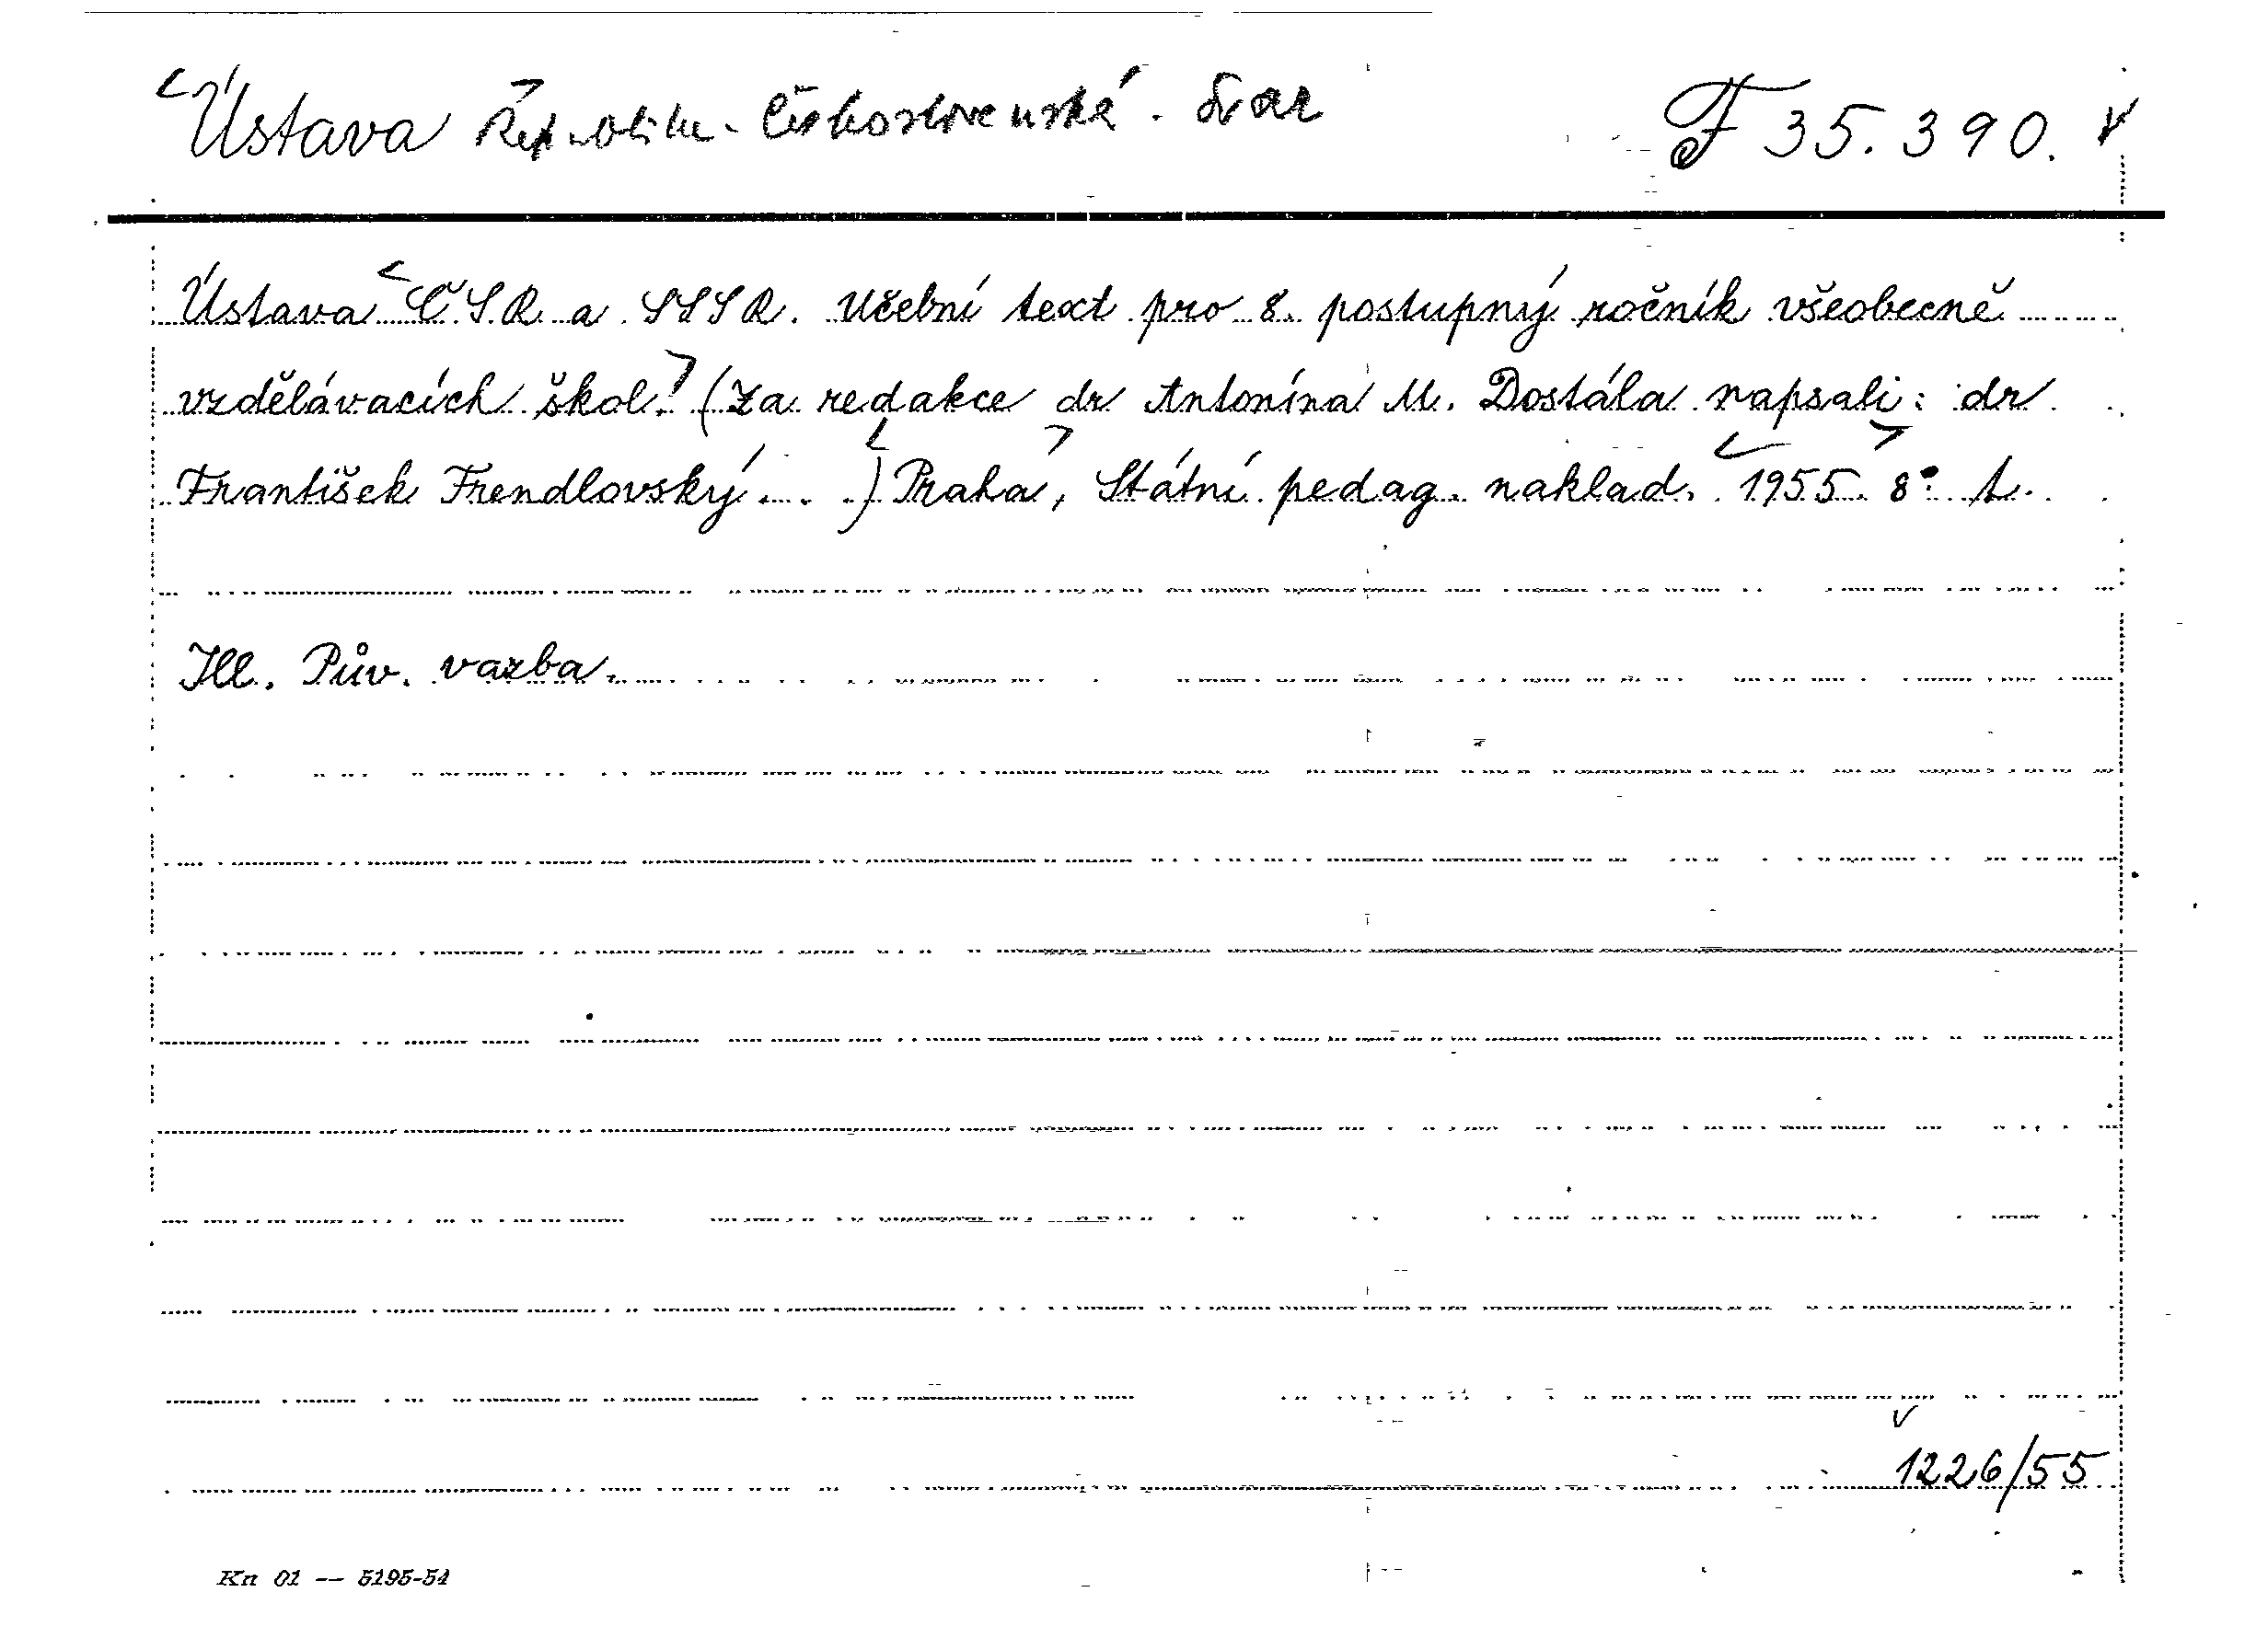 Ústava Republika Československá. Svaz F 35.390.
Ústava ČSR a SSSR. Učební text pro 8. postupný ročník všeobecně
vzdělávacích škol. (Za redakce dr Antonína M. Dostála napsali: dr
František Frendlovský. . .) Praha, Státní pedag. naklad. 1955. 8°.
Ill. Pův. vazba.
1226/55
Kn 01 -- 5195-54